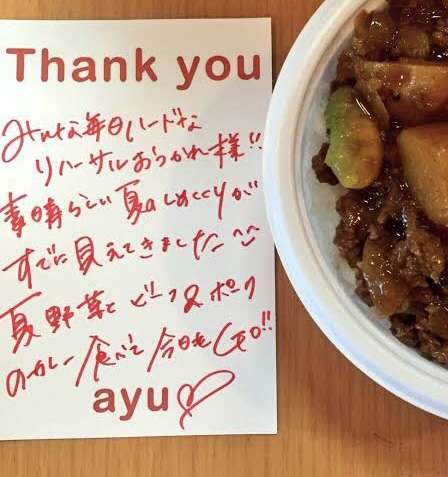 Thank you
みんな毎日ハードな
リハーサルおつかれ様!!
素晴らしい夏のしめくくりが
すでに見えてきました^^
夏野菜と ビーフ&ポーク
のカレー食べて 今日も GO!!
ayu♡